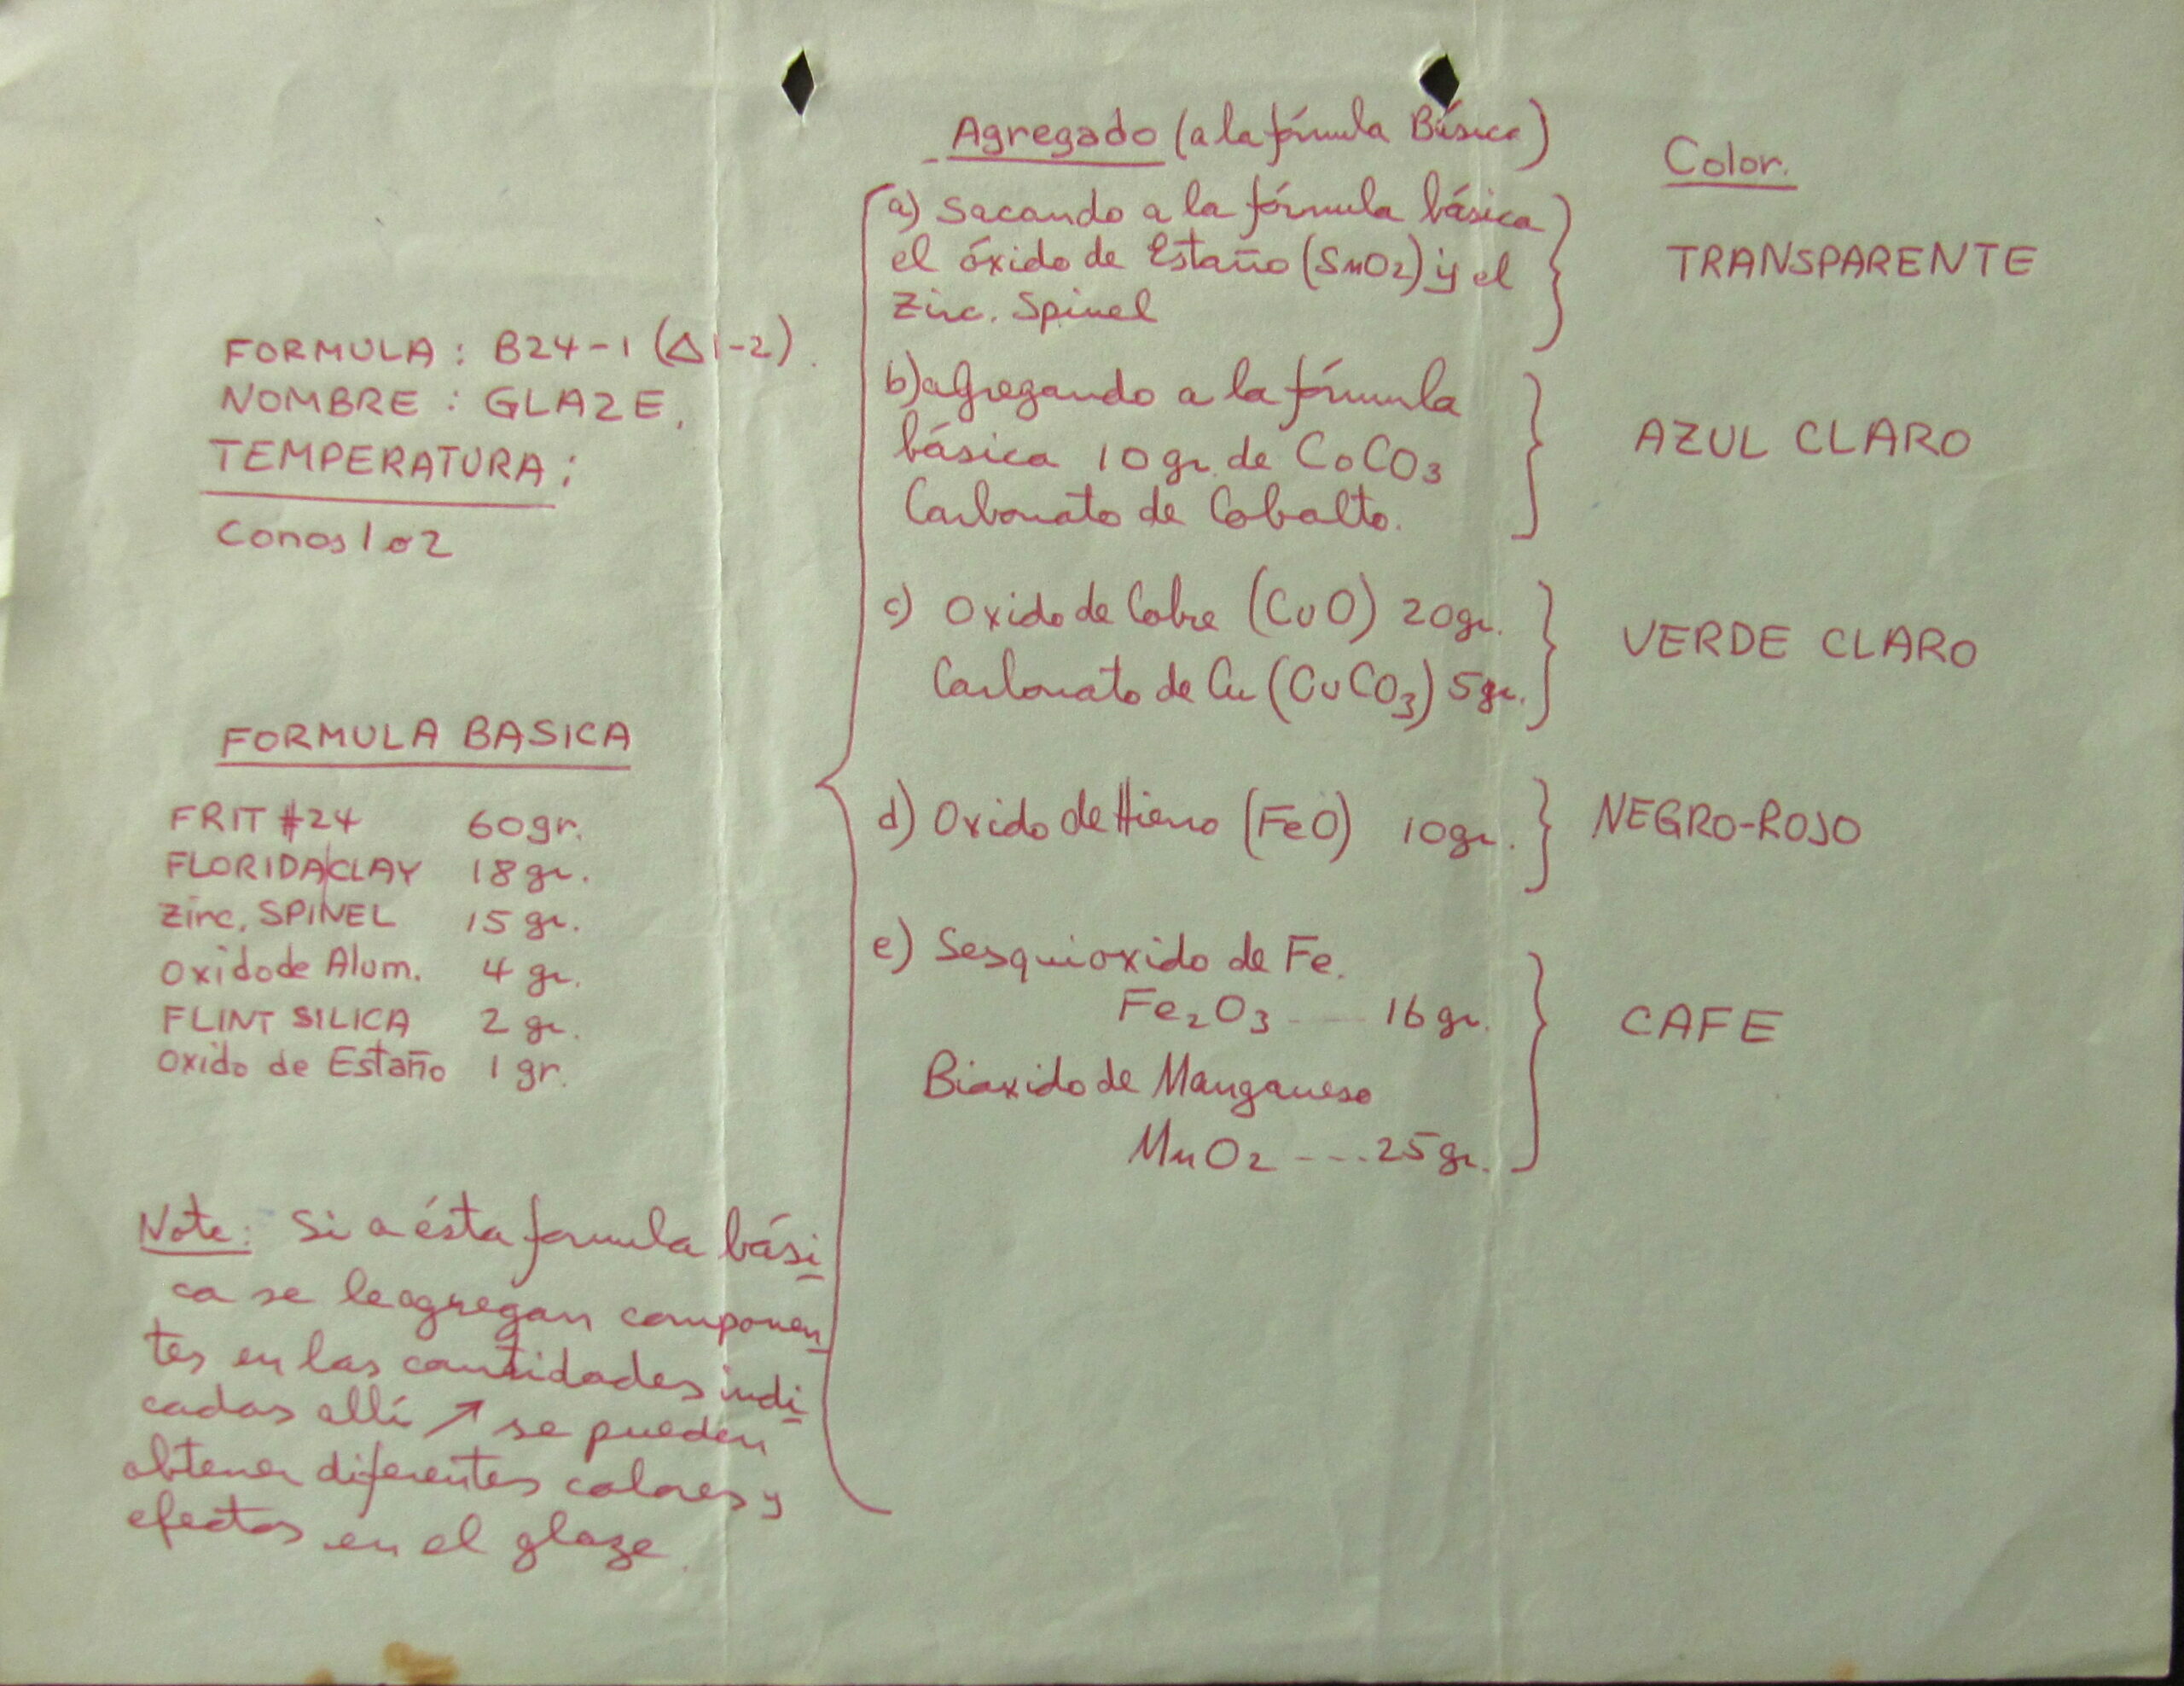 FORMULA : B24-1 (△ 1-2).
NOMBRE : GLAZE,
TEMPERATURA :
Conos 1 o 2
FORMULA BASICA
FRIT #24 60gr.
FLORIDA CLAY 18 gr.
Zinc, SPINEL 15 gr.
Oxido de Alum. 4 gr.
FLINT SILICA 2 gr.
Oxido de Estaño 1 gr.
Note: Si a ésta formula bási
ca se le agregan componen
tes en las cantidades indi
cadas allí ↗ se pueden
obtener diferentes colores y
efectos en el glaze.
Agregado (a la fórmula Básica)
a) Sacando a la fórmula básica
el óxido de Estaño (SnO2) y el
Zinc. Spinel
b) agregando a la fórmula
básica 10 gr. de CoCO3
Carbonato de Cobalto.
c) Oxido de Cobre (CuO) 20gr.
Carbonato de Cu (CuCO3) 5gr.
d) Oxido de Hierro (FeO) 10gr.
e) Sesquioxido de Fe.
Fe2O3 --- 16 gr.
Bioxido de Manganeso
MnO2 --- 25 gr.
Color.
TRANSPARENTE
AZUL CLARO
VERDE CLARO
NEGRO-ROJO
CAFE